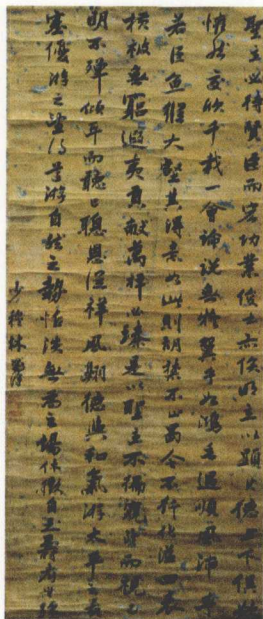 聖主必待賢臣而宏功業俊士亦俟明主以顯其德上下俱欲
懽然交欣千載一會論說無疑翼乎如鴻毛遇順風沛乎
若巨魚縱大壑其得意如此則胡禁不止曷令不行化溢四表
橫被無窮遐夷貢獻萬祥必臻是以聖主不徧窺望而視已
明不殫傾耳而聽已聰恩從祥風翱德與和氣游太平之責
塞優游之望得遵游自然之勢恬淡無為之場休徵自至壽考無疆
少穆林則徐